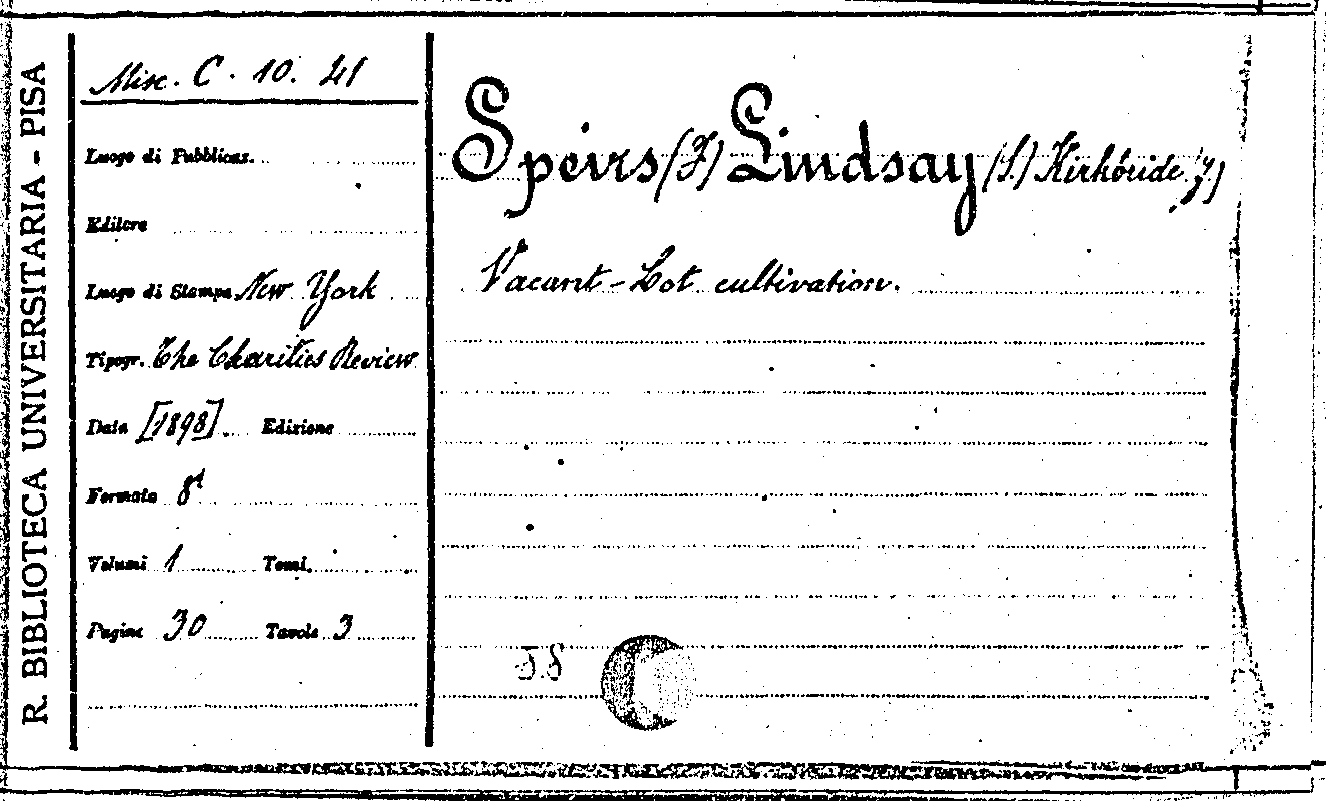 R. BIBLIOTECA UNIVERSITARIA - PISA
Misc. C. 10. 41
Luogo di Pubblicaz.
Editore
Luogo di Stampa New York
Tipogr. The Charities Review
Data [1898]. Edizione
Formato 8º
Volumi 1 Tomi
Pagine 30 Tavole 3
Speirs (F) Lindsay (S.) Kirkbride (J.)
Vacant-Lot cultivation.